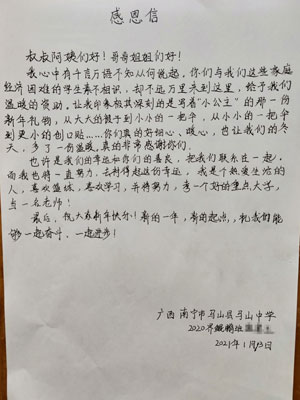 感恩信
叔叔阿姨们好！哥哥姐姐们好！
我心中有千言万语不知从何说起，你们与我们这些家庭
经济困难的学生素不相识，却不远万里来到这里，给予我们
温暖的资助。让我印象极其深刻的是写着"小公主"的那一份
新年礼物，从大大的被子到小小的一把伞，从小小的一把伞
到更小的创口贴……你们真的好细心、暖心，也让我们的冬
天，多了一份温暖，真的非常感谢你们。
也许是我们的幸运和你们的善良，把我们联系在一起，
而我也将一直努力，去对得起这份幸运，我是个热爱生活的
人，喜欢篮球，喜欢学习，并将努力，考一个好的重点大学，
当一名老师！
最后，祝大家新年快乐！新的一年，新的起点，祝我们能
够一起奋斗、一起进步！
广西南宁市马山县马山中学
2020届
2021年1月13日